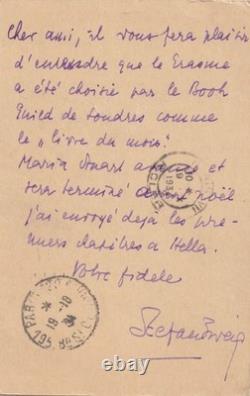 Cher ami, il vous fera plaisir
d'entendre que le Erasme
a été choisi par le Book
Guild de Londres comme
le „livre du mois".
Maria Stuart avance et
sera terminé avant noël
j'ai envoyé déjà les pre-
miers chapitres à Hella.
Votre fidèle
Stefan Zweig
PARIS
19-10
34
195
© 123avis.com